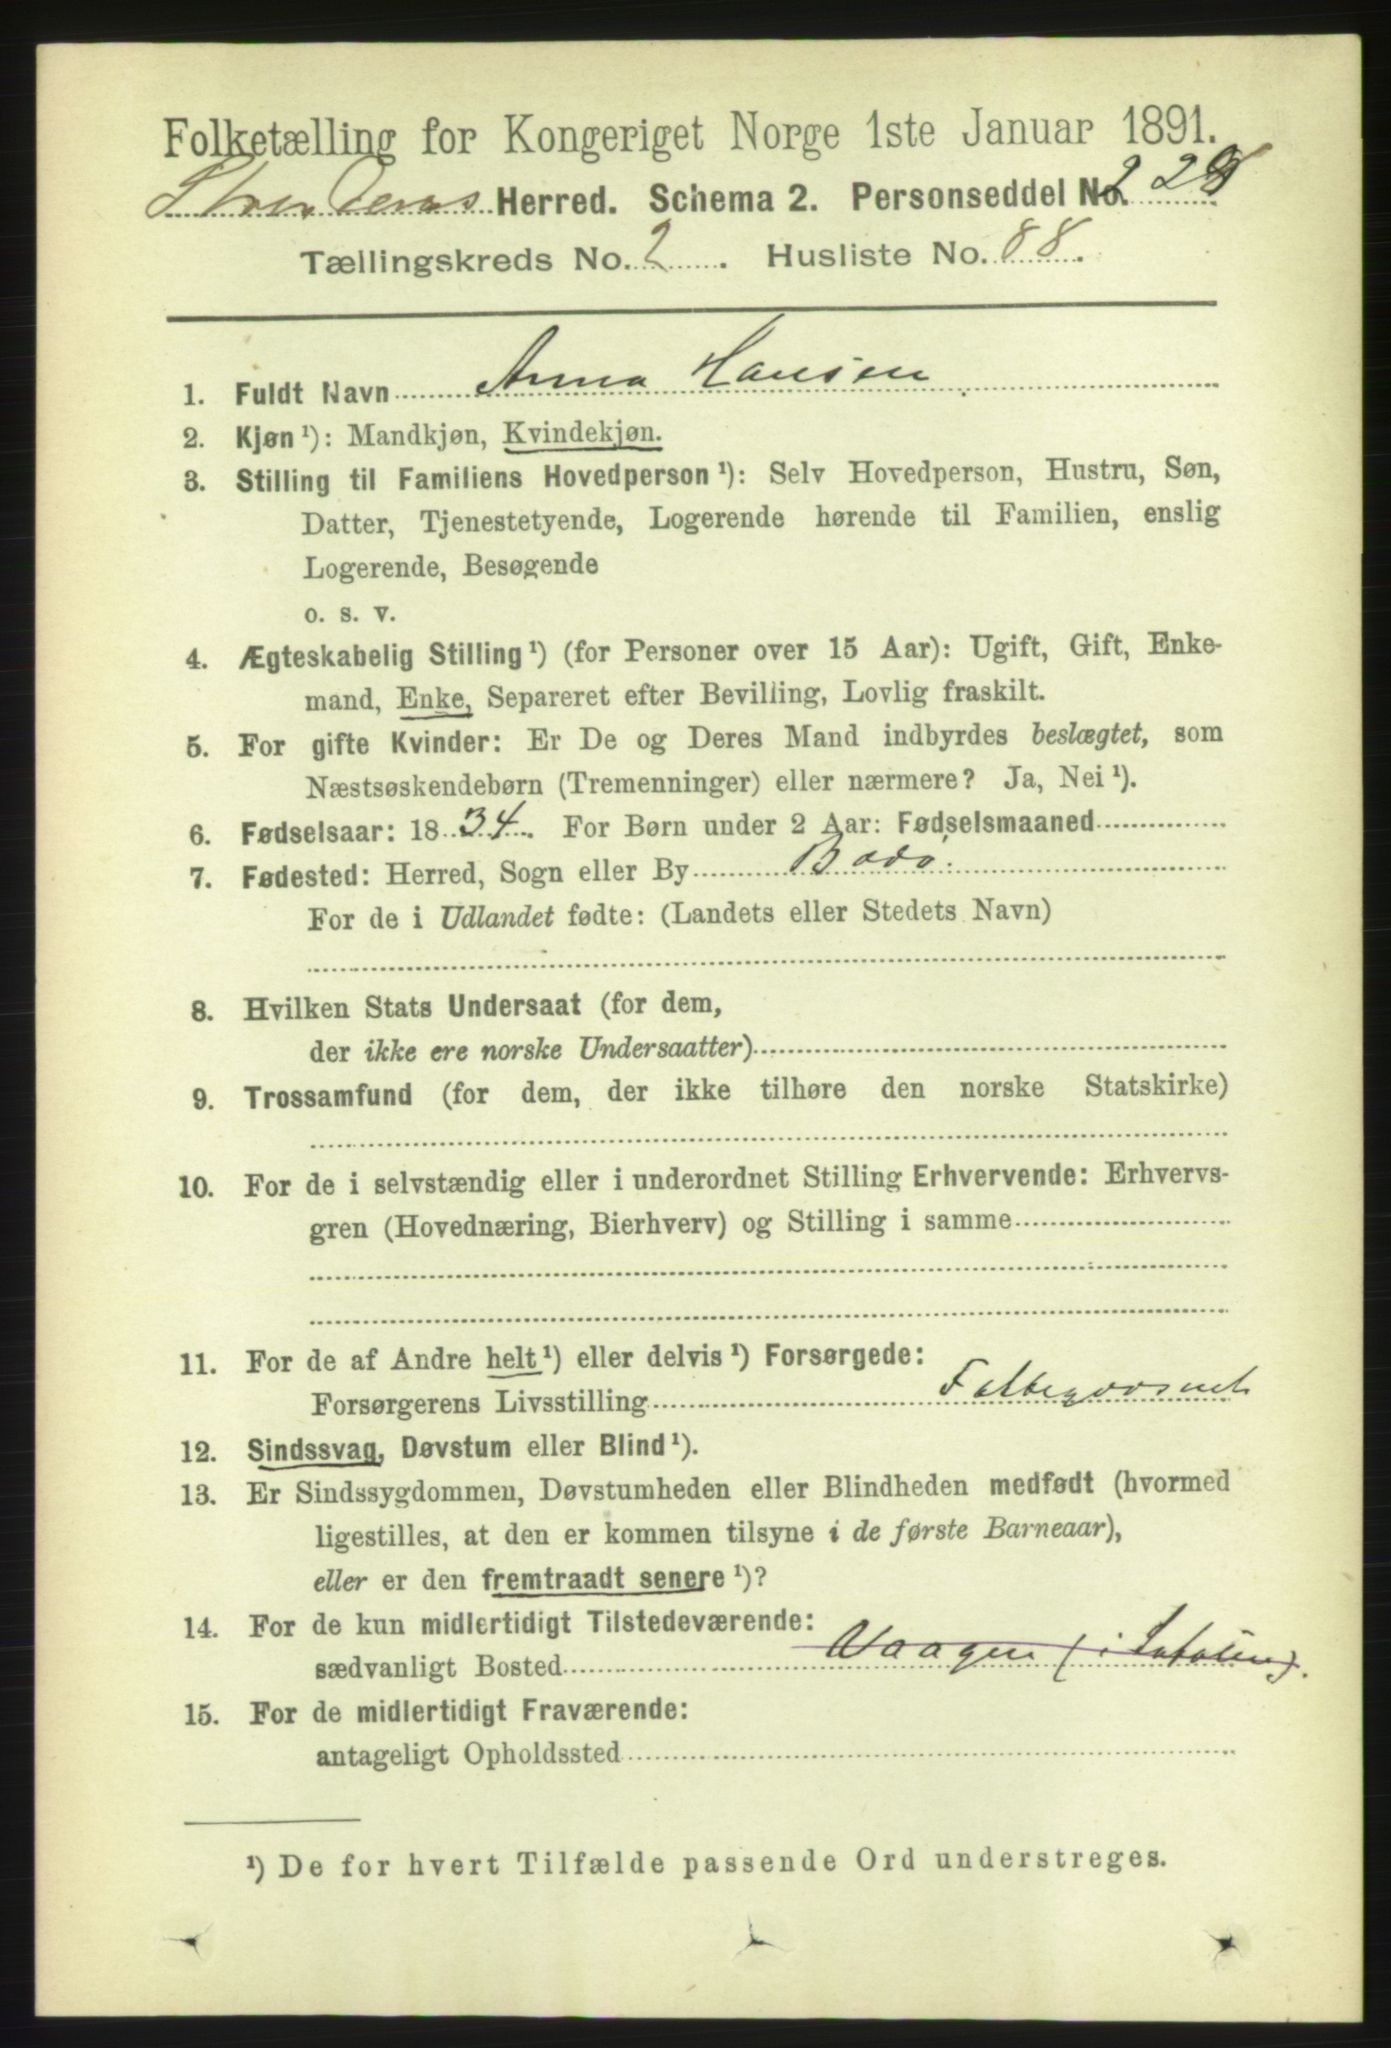 Folketælling for Kongeriget Norge 1ste Januar 1891.
Herred. Schema 2. Personseddel No. 228
Tællingskreds No. 2. Husliste No. 88.
1. Fuldt Navn Anna Hansen
2. Kjøn¹): Mandkjøn, Kvindekjøn.
3. Stilling til Familiens Hovedperson¹): Selv Hovedperson, Hustru, Søn,
Datter, Tjenestetyende, Logerende hørende til Familien, enslig
Logerende, Besøgende
o. s. v.
4. Ægteskabelig Stilling¹) (for Personer over 15 Aar): Ugift, Gift, Enke-
mand, Enke, Separeret efter Bevilling, Lovlig fraskilt.
5. For gifte Kvinder: Er De og Deres Mand indbyrdes beslægtet, som
Næstsøskendebørn (Tremenninger) eller nærmere? Ja, Nei¹).
6. Fødselsaar: 1834. For Børn under 2 Aar: Fødselsmaaned
7. Fødested: Herred, Sogn eller By Bodø.
For de i Udlandet fødte: (Landets eller Stedets Navn)
8. Hvilken Stats Undersaat (for dem,
der ikke ere norske Undersaatter)
9. Trossamfund (for dem, der ikke tilhøre den norske Statskirke)
10. For de i selvstændig eller i underordnet Stilling Erhvervende: Erhvervs-
gren (Hovednæring, Bierhverv) og Stilling i samme
11. For de af Andre helt¹) eller delvis¹) Forsørgede:
Forsørgerens Livsstilling
12. Sindssvag, Døvstum eller Blind¹).
13. Er Sindssygdommen, Døvstumheden eller Blindheden medfødt (hvormed
ligestilles, at den er kommen tilsyne i de første Barneaar),
eller er den fremtraadt senere¹)?
14. For de kun midlertidigt Tilstedeværende:
sædvanligt Bosted Vaagen (i Lofoten).
15. For de midlertidigt Fraværende:
antageligt Opholdssted
¹) De for hvert Tilfælde passende Ord understreges.